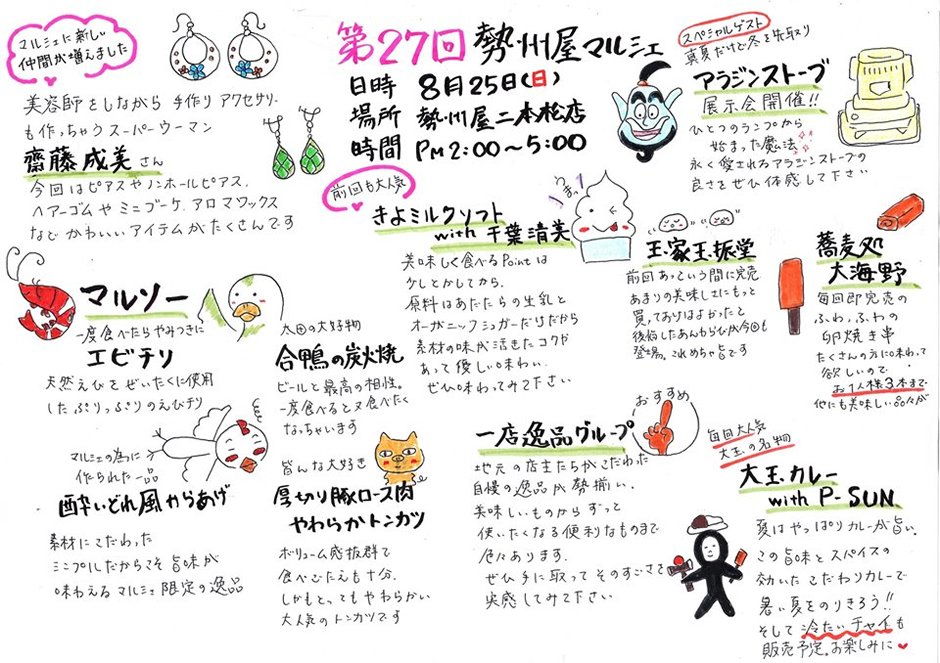 第27回 勢州屋マルシェ
日時 8月25日(日)
場所 勢州屋二本松店
時間 PM2:00〜5:00
マルシェに新しい
仲間が増えました
美容師をしながら 手作り アクセサリー
も作っちゃうスーパーウーマン
齋藤成美さん
今回はピアスやノンホールピアス、
ヘアーゴムや ミニブーケ、アロマワックス
など かわいい アイテムが たくさんです
スペシャルゲスト
真夏だけど冬を先取り
アラジンストーブ
展示会開催!!
ひとつのランプから
始まった魔法
永く愛されるアラジンストーブの
良さをぜひ体感して下さい
前回も大人気
うまっ
きよミルクソフト
with 千葉清美
美味しく食べるPointは
少しとかしてから。
原料はあだたらの生乳と
オーガニックシュガーだけだから
素材の味が活きたコクが
あって優しい味わい。
ぜひ味わってみて下さい
玉家玉振堂
前回あっという間に完売
あまりの美味しさにもっと
買っておけばよかったと
後悔したあんもちが今回も
登場。これめちゃ旨です
蕎麦処
大海野
毎回即完売の
ふわふわの
卵焼き串
たくさんの方に味わって
欲しいので
お1人様3本まで
他にも美味しい品々が
マルソー
一度食べたらやみつきに
エビチリ
天然えびをぜいたくに使用
したぷりっぷりのえびチリ
太田の大好物
合鴨の炭火焼
ビールと最高の相性。
一度食べるとヌ食べたく
なっちゃいます
マルシェの為に
作られた一品
酔いどれ風からあげ
素材にこだわった
シンプルだからこそ旨味が
味わえるマルシェ限定の逸品
皆んな大好き
厚切り豚ロース肉
やわらかトンカツ
ボリューム感抜群で
食べごたえも十分、
しかもとってもやわらかい
大人気のトンカツです
おすすめ
一店逸品グループ
地元の店主たちがこだわった
自慢の逸品が勢揃い。
美味しいものからずっと
使いたくなる便利なものまで
色々あります。
ぜひ手に取ってそのすごさを
実感してみて下さい
毎回大人気
大玉の名物
大玉カレー
with P-SUN
夏はやっぱりカレーが旨い。
この旨味とスパイスの
効いたこだわりカレーで
暑い夏をのりきろう!!
そして冷たいチャイも
販売予定。お楽しみに